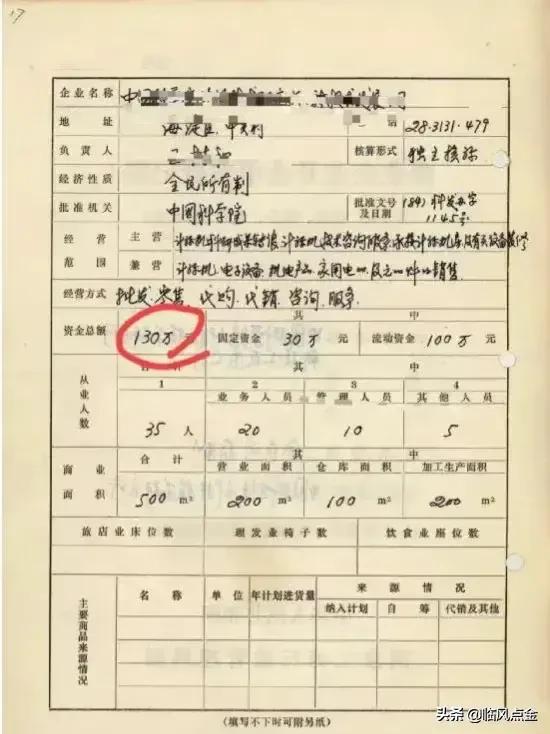 17
企业名称 中国
地址 海淀区中关村 话 28.3131.479
负责人 核算形式 独立核标
经济性质 全民所有制
批准机关 中国科学院 批准文号及日期 (84)科发办字1145号
经营范围 主营 计标机科研成果转让 计标机技术咨询服务 承接计标机房
兼营 计标机、电子设备、机电产品、家用电 销售
经营方式 批发 零售、代购、代销、咨询、服务
资金总额 130万元 其中
固定资金 30万元 流动资金 100万元
从业人数 合计 其中
1 2 3 4
业务人员 管理人员 其他人员
35人 20 10 5
商业面积 合计 其中
营业面积 仓库面积 加工生产面积
500m² 200m² 100m² 200m²
旅店业床位数 理发业椅子数 饮食业座位数
主要商品来源情况 名称 单位 年计划进货量 来源情况
纳入计划 自筹 代销及其他
(填写不下时可附另纸)
头条 @临风点金